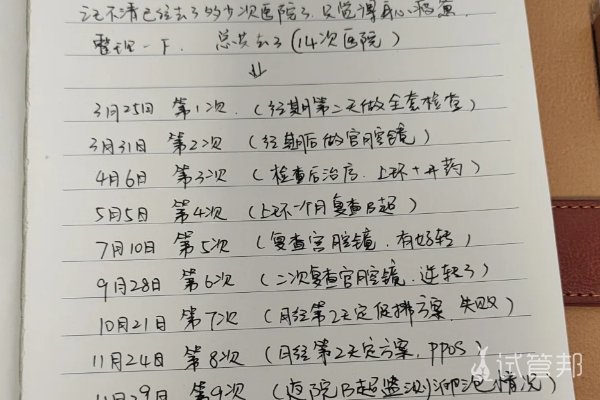 记不清已往去了多少次医院了,只觉得身心疲惫.
整理一下. 总共去了(14次医院)
3月25日 第1次.(经期第二天做全套检查)
3月31日 第2次(经期后做宫腔镜)
4月6日 第3次(检查后治疗.上环+开药)
5月5日 第4次(上环一个月复查B超)
7月10日 第5次(复查宫腔镜.有好转)
9月28日 第6次(二次复查宫腔镜.逆转了)
10月21日 第7次(月经第2天定促排方案.失败)
11月24日 第8次(月经第2天定方案.PPOS)
11月29日 第9次(返院B超监测卵泡情况)
试管邦